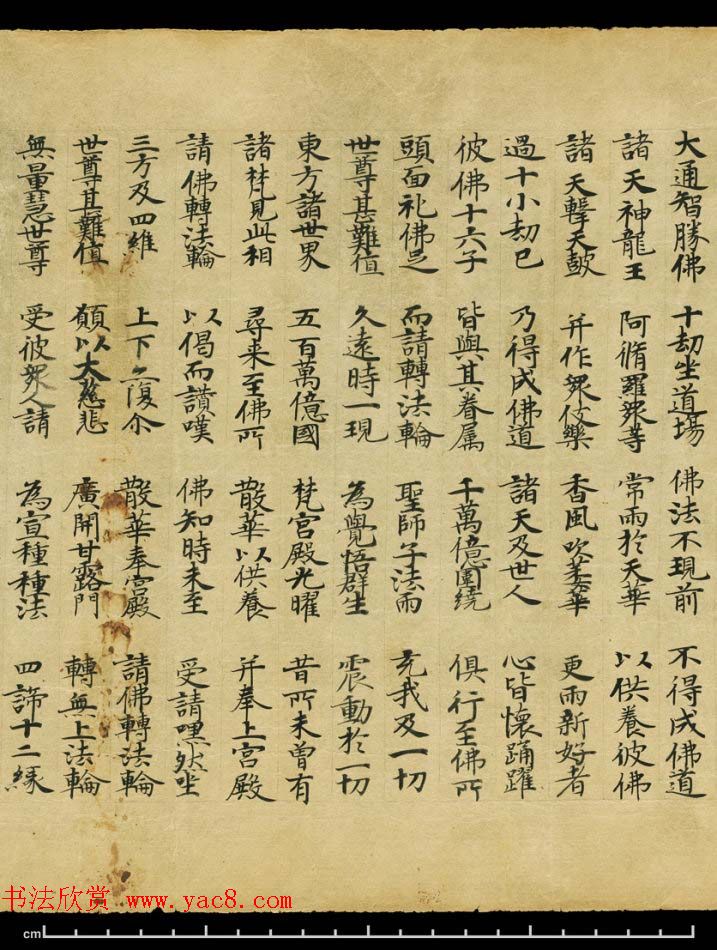 大通智勝佛 十劫坐道場 佛法不現前 不得成佛道
諸天神龍王 阿脩羅衆等 常雨於天華 以供養彼佛
諸天擊天鼓 并作衆伎樂 香風吹萎華 更雨新好者
過十小劫已 乃得成佛道 諸天及世人 心皆懷踊躍
彼佛十六子 皆與其眷属 千萬億圍繞 俱行至佛所
頭面礼佛足 而請轉法輪 聖師子法雨 充我及一切
世尊甚難值 久遠時一現 為覺悟群生 震動於一切
東方諸世界 五百萬億國 梵宮殿光曜 昔所未曾有
諸梵見此相 尋来至佛所 散華以供養 并奉上宮殿
請佛轉法輪 以偈而讚嘆 佛知時未至 受請嘿然坐
三方及四維 上下亦復尒 散華奉宮殿 請佛轉法輪
世尊甚難值 願以大慈悲 廣開甘露門 轉無上法輪
無量慧世尊 受彼衆人請 為宣種種法 四諦十二緣
书法欣赏 www.yac8.com
cm